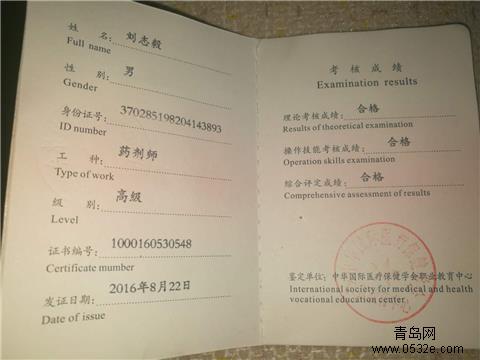 姓 名：刘志毅
Full name
性 别：男
Gender
身份证号：370285198204143893
ID number
工 种：药剂师
Type of work
级 别：高级
Level
证书编号：1000160530548
Certificate number
发证日期：2016年8月22日
Date of issue
考 核 成 绩
Examination results
理论考核成绩：合格
Results of theoretical examination
操作技能考核成绩：合格
Operation skills examination
综合评定成绩：合格
Comprehensive assessment of results
鉴定单位：中华国际医疗保健学会职业教育中心
International society for medical and health
vocational education center
青岛网
www.0532e.com